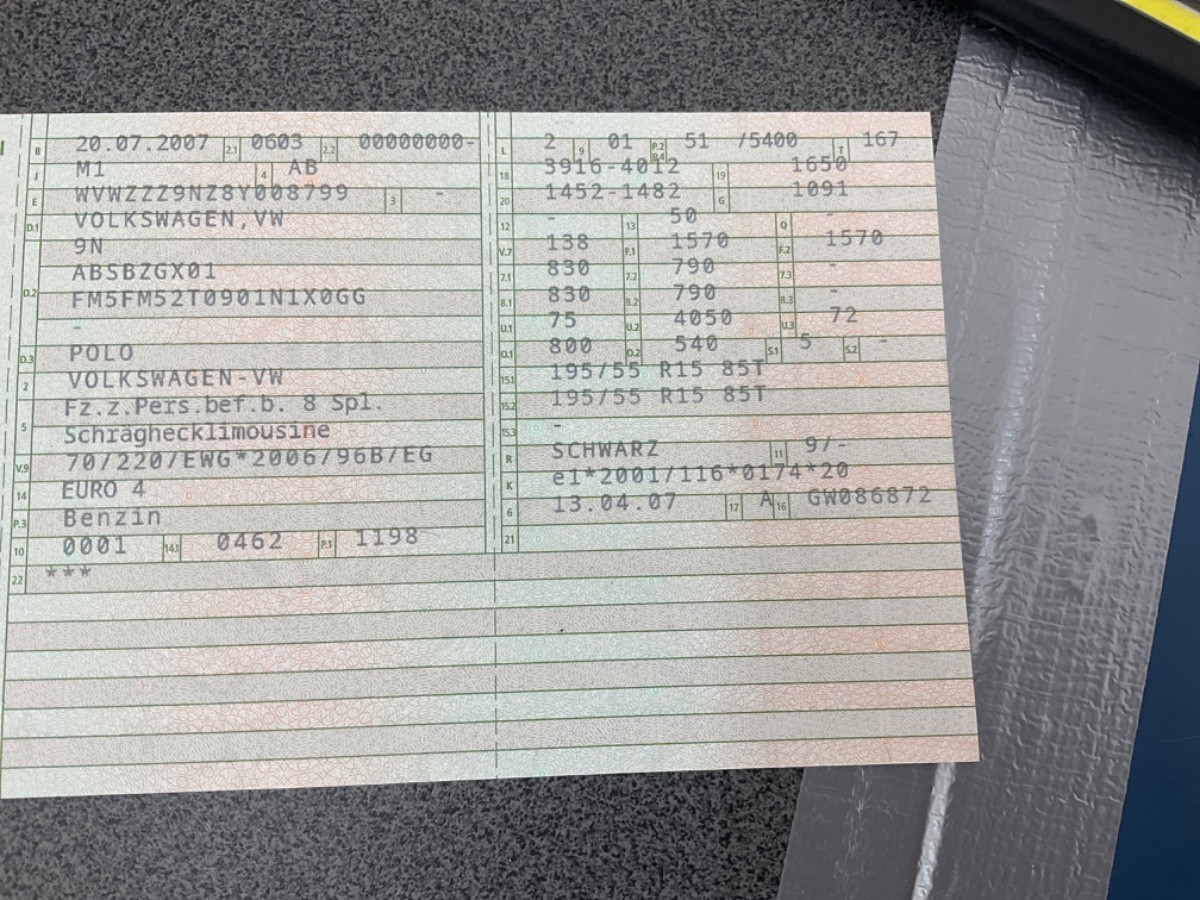 B 20.07.2007 2.1 0603 2.2 00000000-
J M1 4 AB
E WVWZZZ9NZ8Y008799 3 -
D.1 VOLKSWAGEN,VW
9N
D.2 ABSBZGX01
FM5FM52T0901N1X0GG
-
D.3 POLO
2 VOLKSWAGEN-VW
5 Fz.z.Pers.bef.b. 8 Spl.
Schräghecklimousine
V.9 70/220/EWG*2006/96B/EG
14 EURO 4
P.3 Benzin
10 0001 14.1 0462 P.1 1198
22 ***
L 2 9 01 P.2 P.4 51 /5400 T 167
18 3916-4012 19 1650
20 1452-1482 G 1091
12 - 13 50 Q -
V.7 138 F.1 1570 F.2 1570
7.1 830 7.2 790 7.3 -
8.1 830 8.2 790 8.3 -
U.1 75 U.2 4050 U.3 72
O.1 800 O.2 540 S.1 5 S.2 -
15.1 195/55 R15 85T
15.2 195/55 R15 85T
15.3 -
R SCHWARZ 11 9/-
K e1*2001/116*0174*20
6 13.04.07 17 A 16 GW086872
21